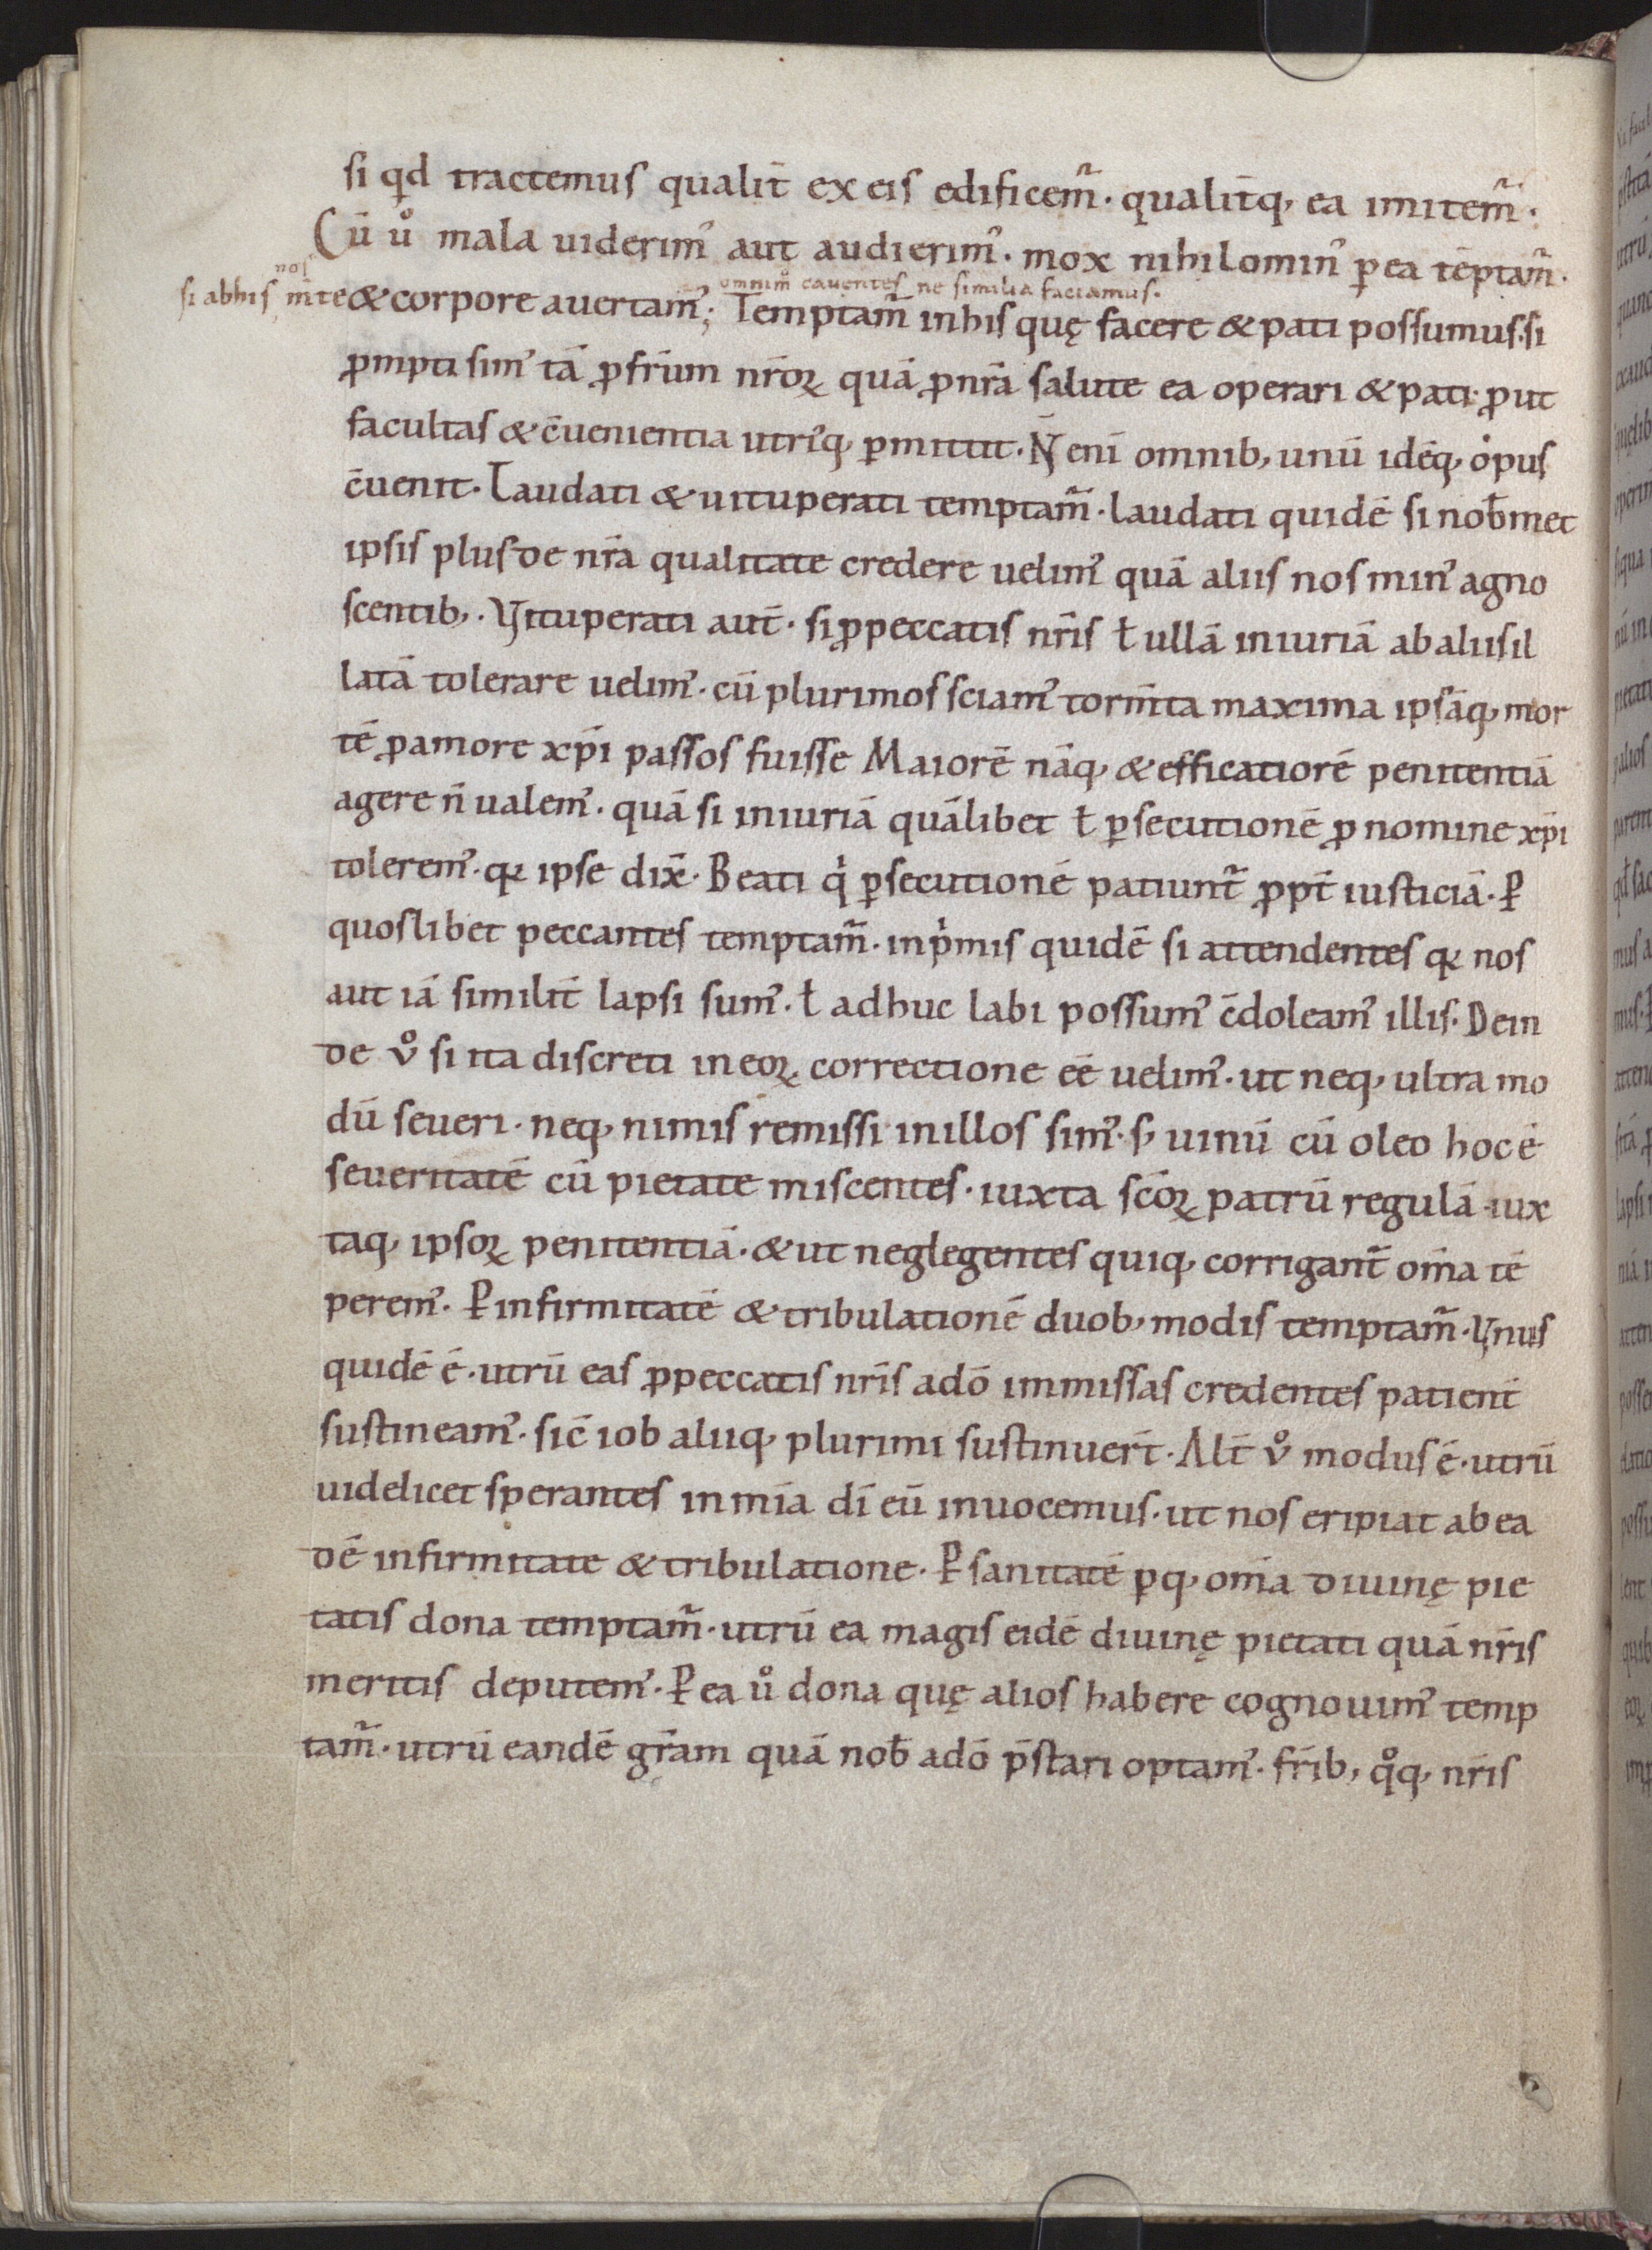 si qd tractemus qualit̄ ex eis edificem̃. qualit̄q, ea imitem̃.
Cū ů mala uiderim᾽ aut audierim᾽. mox nihilomin᾽ p̱ ea tēptam̃.
nos
si abhis m̄te & corpore auertam᾽; omnim̊ cauentes ne similia faciamus.
Temptam̃ inhis quę facere & pati possumus. si
ꝓmpti sim᾽ tā ꝓ fr̄um nr̄oꝝ quā ꝓ nr̄a salute ea operari & pati. ꝓut
facultas & c̄uenientia utriq, ꝑmittit. N̄ eni omnib, unū idēq, opus
c̄uenit. Laudati & uituperati temptam̃. laudati quidē si nob̄met
ipsis plus de nr̄a qualitate credere uelim᾽ quā aliis nos min᾽ agno
scentib,. Vituperati aut̄. si ꝓ peccatis nr̄is ł ullā iniuriā ab aliis il
latā tolerare uelim᾽. cū plurimos sciam᾽ torm̄ta maxima ipsāq, mor
tē ꝓ amore xp̄i passos fuisse Maiorē nāq, & efficatiorē penitentiā
agere n̄ ualem᾽. quā si iniuriā quālibet ł ꝑsecutionē ꝓ nomine xp̄i
tolerem᾽. qꝛ ipse dix̄. Beati q̇ ꝑsecutionē patiunt̃ ꝓpt̄ iusticiā. ꝑ
quoslibet peccantes temptam̃. inp̓mis quidē si attendentes qꝛ nos
aut iā similit̄ lapsi sum᾽. ł adhuc labi possum᾽ c̄doleam᾽ illis. Dein
de v̊ si ita discreti in eoꝝ correctione ēē uelim᾽. ut neq, ultra mo
dū seueri. neq, nimis remissi inillos sim᾽. s, uinū cū oleo hoc ē
seueritatē cū pietate miscentes. iuxta sc̄oꝝ patrū regulā. iux
taq, ipsoꝝ penitentiā. & ut neglegentes quiq, corrigant̃ om̄a tē
perem᾽. ꝑ infirmitatē & tribulationē duob, modis temptam̃. Vnus
quidē ē. utrū eas ꝓ peccatis nr̄is adō immissas credentes patient̄
sustineam᾽. sic̄ iob aliiq, plurimi sustinuer̄t. Alt̄ v̊ modus ē. utrū
uidelicet sperantes in mīa dī eū inuocemus. ut nos eripiat ab ea
dē infirmitate & tribulatione. ꝑ sanitatē ꝑq, om̄a diuinę pie
tatis dona temptam̃. utrū ea magis eidē diuinę pietati quā nr̄is
meritis deputem᾽. ꝑ ea ů dona quę alios habere cognouim᾽ temp
tam̃. utrū eandē gr̄am quā nob̄ adō p̄stari optam᾽. fr̄ib, q̊q, nr̄is